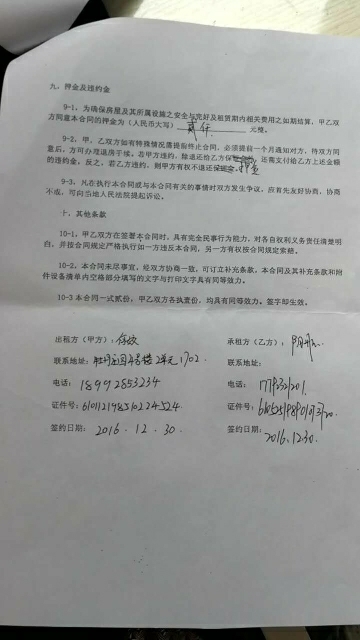 九、押金及违约金
9-1、为确保房屋及其所属设施之安全与完好及租赁期内相关费用之如期结算，甲乙双
方同意本合同的押金为（人民币大写）贰仟 元整。
9-2、甲、乙双方如有特殊情况需提前终止合同，必须提前一个月通知对方，待双方同
意后，方可办理退房手续。若甲方违约，除退还给乙方保 还需支付给乙方上述金额
的违约金，反之，若乙方违约，则甲方有权不退还保 押金
9-3、凡在执行本合同或与本合同有关的事情时双方发生争议，应首先友好协商，协商
不成，可向当地人民法院提起诉讼。
十、其他条款
10-1、甲乙双方在签署本合同时，具有完全民事行为能力，对各自权利义务责任清楚明
白，并按合同规定严格执行如一方违反本合同，另一方有权按合同规定索赔。
10-2、本合同未尽事宜，经双方协商一致，可订立补充条款，本合同及其补充条款和附
件设备清单内空格部分填写的文字与打印文字具有同等效力。
10-3 本合同一式贰份，甲乙双方各执壹份，均具有同等效力。签字即生效。
出租方（甲方）：
承租方（乙方）：
联系地址：牡丹庄园4号楼2单元1702.
联系地址：
电话：18992853234
电话：
证件号：610121198510224524
证件号：
签约日期：2016.12.30.
签约日期：2016.12.30.